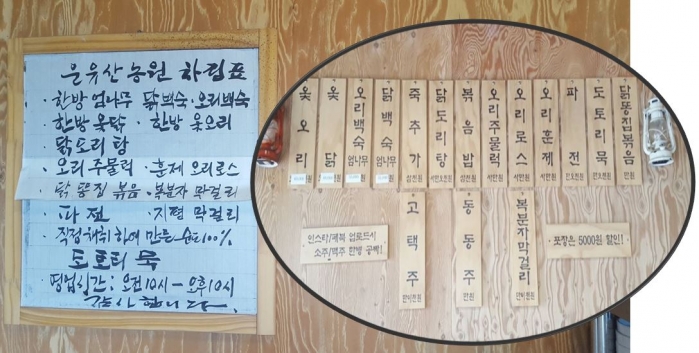 운유산농원 차림표
· 한방 엄나무 닭백숙 · 오리백숙
· 한방 옻닭 · 한방 옻오리
· 닭도리탕
· 오리주물럭 · 훈제 오리로스
· 닭똥집 볶음 · 복분자 막걸리
· 파전 · 지평 막걸리
· 직접 채취하여 만든 100%
도토리묵
영업시간 : 오전10시 - 오후10시
감사합니다.
옻오리
옻닭
오리백숙 엄나무
닭백숙 엄나무
죽추가 삼천원
닭도리탕
볶음밥 삼천원
오리주물럭
오리로스
오리훈제
파전 만오천원
도토리묵 만오천원
닭똥집볶음 만원
인스타/페북 업로드시
소주/맥주 한병 공짜!
고택주 만이천원
동동주 만원
복분자막걸리 만이천원
포장은 5000원 할인!